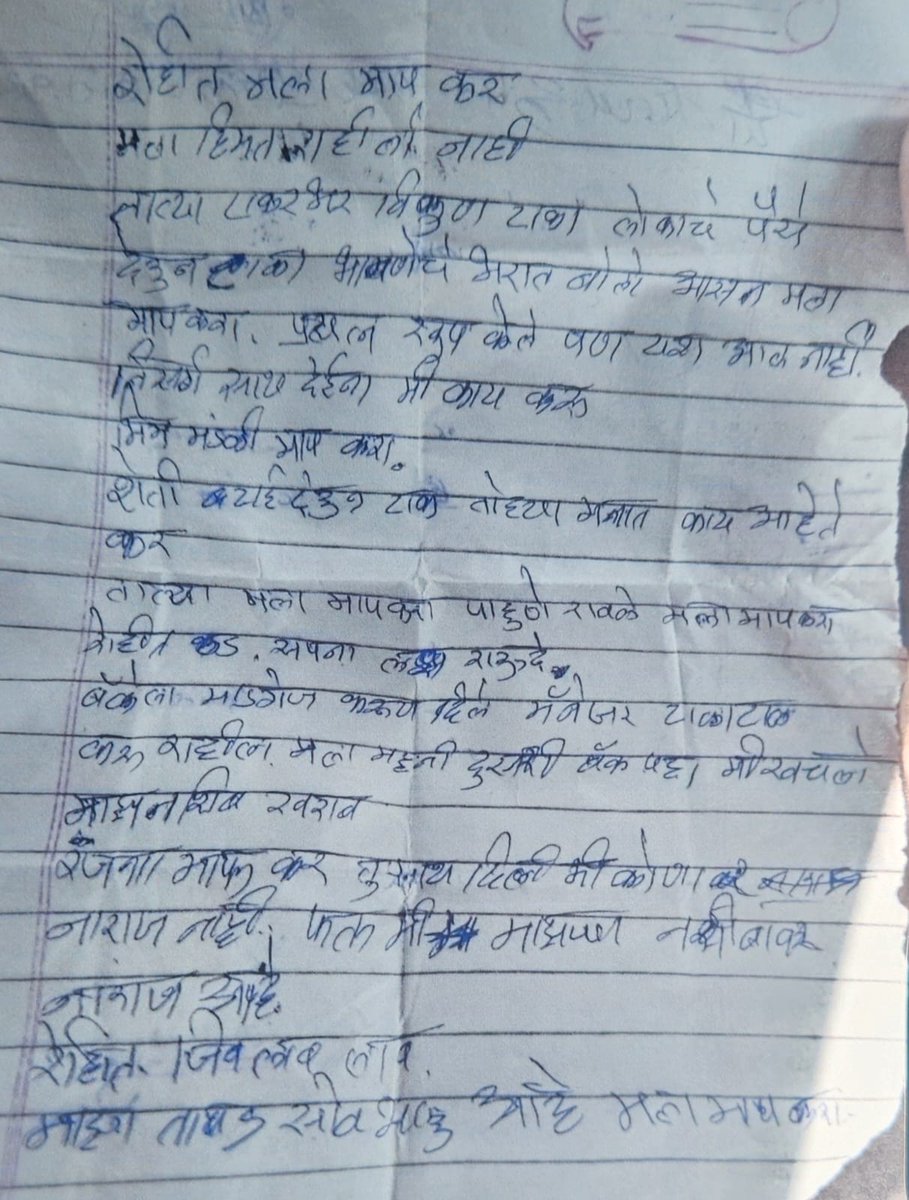 रोहीत मला माप कर
मला हिमत राहीली नाही
तात्या टाकरभर विकुण टाका लोकाचे पैसे
देवुन टाका भावपणेचे भरात बोलो आसन मला
माप करा. प्रयत्न खुप केले पण यश आल नाही.
निसर्ग साथ देईना मी काय करू
मित्र मंडळी माप करा.
शेती बटाई देवुन टाक तोह्या मनात काय आहे ते
कर
तात्या मला माप करा पाहुणे रावळे मला माप करा
रोहीत कड. सपना लक्ष राहुदे.
बँकेला मारगेज करूण दिले मॅनेजर टाळाटाळ
करू राहीला. मला म्हनी दुसरी बँक पहा मी खचलो
माझ नशिब खराब
रंजना माफ कर तु साथ दिली मी कोणावर
नाराज नाही. फक्त मी माझ्या नशीबावर
नाराज आहे.
रोहित. जिव लाव.
माझा ताबड भाऊ आहे मला माप करा.